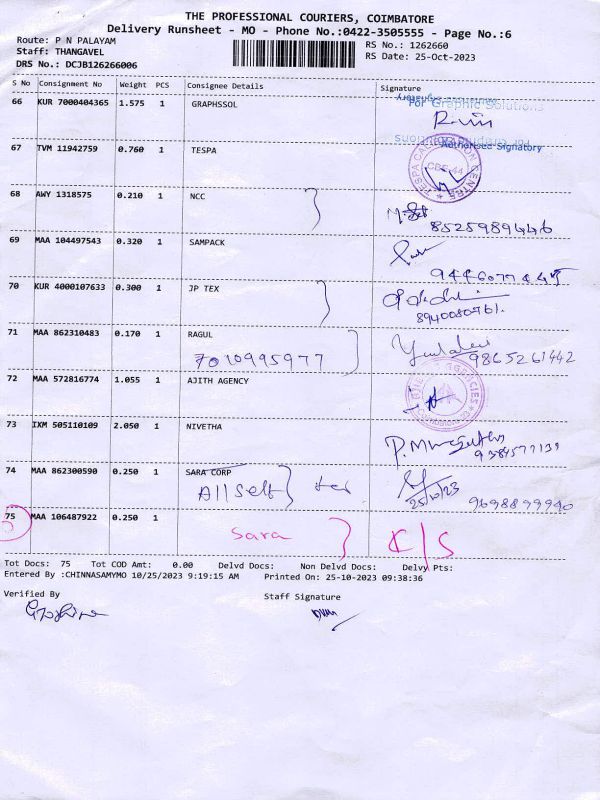 THE PROFESSIONAL COURIERS, COIMBATORE
Delivery Runsheet - MO - Phone No.:0422-3505555 - Page No.:6
Route: P N PALAYAM
Staff: THANGAVEL
DRS No.: DCJB126266006
RS No.: 1262660
RS Date: 25-Oct-2023
S No Consignment No Weight PCS Consignee Details Signature
66 KUR 7000404365 1.575 1 GRAPHSSOL
For Graphic Solutions
Authorised Signatory
67 TVM 11942759 0.760 1 TESPA
68 AWY 1318575 0.210 1 NCC
8525989446
69 MAA 104497543 0.320 1 SAMPACK
70 KUR 4000107633 0.300 1 JP TEX
8940080761.
71 MAA 862310483 0.170 1 RAGUL
7010995977 9865261442
72 MAA 572816774 1.055 1 AJITH AGENCY
73 IXM 505110109 2.050 1 NIVETHA
74 MAA 862300590 0.250 1 SARA CORP
All Self
25/10/23 9698899940
75 MAA 106487922 0.250 1
Sara
Tot Docs: 75 Tot COD Amt: 0.00 Delvd Docs: Non Delvd Docs: Delvy Pts:
Entered By :CHINNASAMYMO 10/25/2023 9:19:15 AM Printed On: 25-10-2023 09:38:36
Verified By
Staff Signature